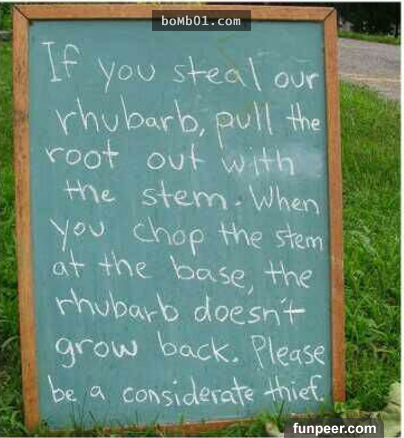 boMb01.com
If you steal our
rhubarb, pull the
root out with
the stem. When
you chop the stem
at the base, the
rhubarb doesn't
grow back. Please
be a considerate thief.
funpeer.com